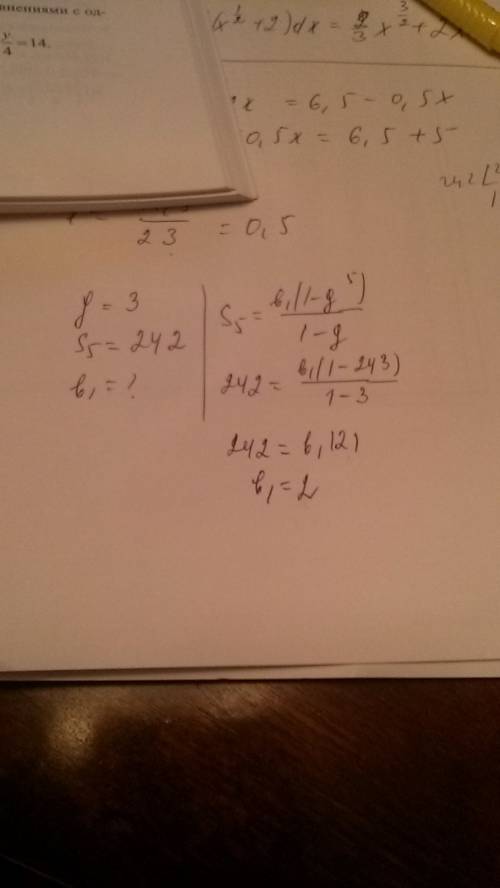 нениями с од-
y/4 = 14.
(x^{1/2} + 2) dx = 2/3 x^{3/2} + 2x
x = 6,5 - 0,5x
0,5x = 6,5 + 5
23 = 0,5
q = 3
S₅ = 242
b₁ = ?
S₅ = b₁(1-q⁵) / 1-q
242 = b₁(1-243) / 1-3
242 = b₁121
b₁ = 2